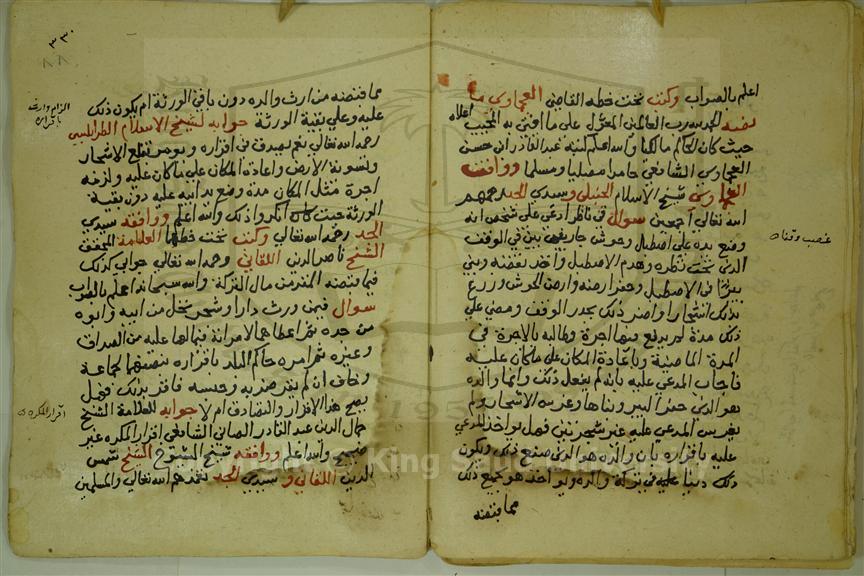 اعلم بالصواب وكتب تحت خطه القاضي العجماوي ما
لفظه الحمد لله رب العالمين المعول على ما افتى به المجيب اعلاه
حيث كان الحاكم مالكيا والله اعلم كتبه عبد القادر ابن حسن
العجماوي الشافعي حامدا مصليا ومسلما ووافقه
شيخ الاسلام الحنبلي وسيدي الجد رحمهم
الله تعالى اجمعين سوال في ناظر ادعى على شخص انه
وضع يده على اصطبل وحوش جاريين في الوقف
الذي تحت نظره وهدم الاصطبل واخذ نقضه وبنى
بئرا في الاصطبل وحفر ارضه وارض الحوش وزرع
بذلك اشجارا واضر ذلك بجدر الوقف ومضى على
ذلك مدة لم يدفع فيها اجرة وطالبه بالاجرة في
المدة الماضية وباعادة المكان على ما كان عليه
فاجاب المدعى عليه بانه لم يفعل ذلك وانما والده
هو الذي حفر البير وبناها وغرس الاشجار ولم
يغرس المدعى عليه غير شجرتين فهل يواخذ المدعى
عليه باقراره بان والده هو الذي صنع ذلك ويكون
ذلك دينا عليه في تركة والده ويواخذ هو بجميع ذلك
مما يقتضه
غصب وقناه
٣٣٠
مما قبضه من ارث والده دون باقي الورثة ام يكون ذلك
عليه وعلى بقية الورثة جوابه لشيخ الاسلام الطرابلسي
رحمه الله تعالى نعم يصدق في اقراره ويومر بقلع الاشجار
وتسوية الارض واعادة المكان على ما كان عليه ولزمه
اجرة مثل المكان مدة وضع يد ابيه عليه دون بقية
الورثة حيث كان انكروا ذلك والله اعلم ووافقه سيدي
الجد رحمه الله تعالى وكتب تحت خطهما العلامة المحقق
الشيخ ناصر الدين اللقاني رحمه الله تعالى جوابي كذلك
فيما قبضه المقر من مال التركة والله سبحانه اعلم بالصواب
سوال فيمن ورث دارا وشجر نخل من ابيه وابوه
من جده ثم اعطاهما لامراته فيما لها عليه من الصداق
وغيره ثم امره حاكم البلد باقراره بنصفهما لجماعة
وخاف ان لم يقر ضربه وحبسه فاقر بذلك فهل
يصح هذا الاقرار والتصادق ام لا جوابه للعلامة الشيخ
جمال الدين عبد القادر الصاني الشافعي اقرار المكره غير
صحيح والله اعلم ووافقه شيخ الشيوخ الشيخ شمس
الدين اللقاني وسيدي الجد تغمدهم الله تعالى والمسلمين
الزام وارث
باقراره
اقرار المكره
King Saud University
1957